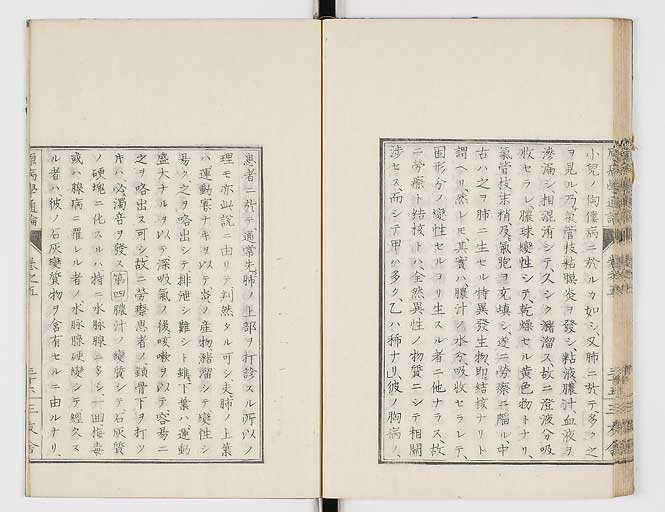 小兒ノ佝僂病ニ於ルカ如シ、又肺ニ於テ多ク之
ヲ見ル、乃氣管枝粘膜炎ヲ發シ粘液膿汁、血液ヲ
滲漏シ、相混淆シテ、久シク瀦溜ス故ニ澄液分吸
收セラレ、膿球變性シテ乾燥セル黄色物トナリ、
氣管枝末梢及氣胞ヲ充填シ、遂ニ勞瘵ニ陥ル、中
古ハ之ヲ肺ニ生セル特異發生物即結核ナリト
謂ヘリ、然レモ其實ハ膿汁ノ水分吸收セラレテ、
固形分ノ變性セルヨリ生スル者ニ他ナラス、故
ニ勞瘵ト結核トハ、全然異性ノ物質ニシテ相關
渉セス、而シテ甲ハ多ク、乙ハ稀ナリ、彼ノ胸病ノ、
患者ニ於テ通常先肺ノ上部ヲ打診スル所以ノ
理モ亦此説ニ由リテ判然タル可シ、夫肺ノ上葉
ハ運動寡ナキヲ以テ、炎ノ産物瀦溜シテ變性シ
易ク之ヲ咯出シテ排泄シ難シト雖、下葉ハ運動
盛大ナルヲ以テ深吸氣ノ後咳嗽ヲ以テ容易ニ
之ヲ咯出ス可シ故ニ勞瘵患者ノ鎖骨下ヲ打ツ
片ハ必濁音ヲ發ス第四膿汁ノ變質シテ石灰質
ノ硬塊ニ化スルハ特ニ水脉腺ニ多シ、一回梅毒
或ハ腺病ニ罹レル者ノ水脉腺硬變シテ經久ス
ル者ハ彼ノ石灰變質物ヲ含有セルニ由ルナリ、
原病學通論
卷之五
三十六
三友舎